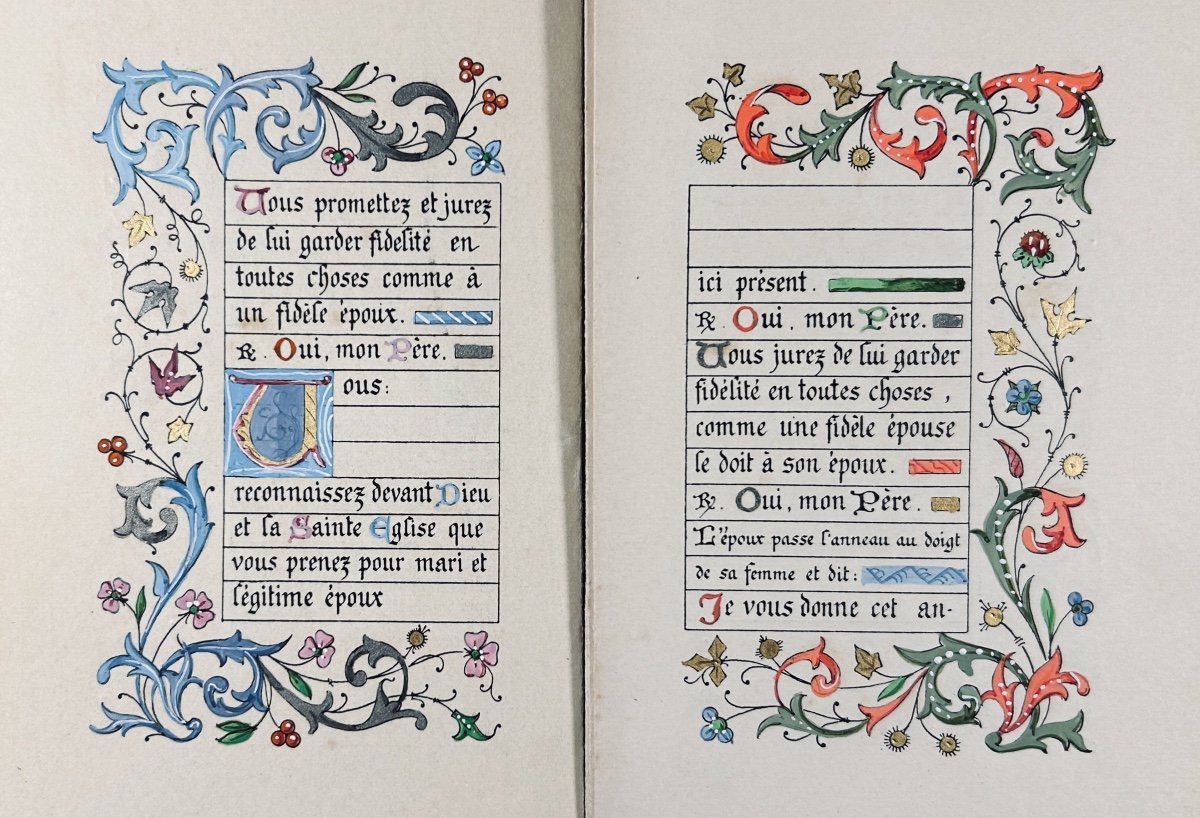 Vous promettez et jurez
de lui garder fidelité en
toutes choses comme à
un fidèle époux.
℟. Oui, mon Père.
Vous:
reconnaissez devant Dieu
et la Sainte Eglise que
vous prenez pour mari et
légitime époux
ici présent.
℟. Oui, mon Père.
Vous jurez de lui garder
fidélité en toutes choses,
comme une fidèle épouse
le doit à son époux.
℟. Oui, mon Père.
L'époux passe l'anneau au doigt
de sa femme et dit:
Je vous donne cet an-